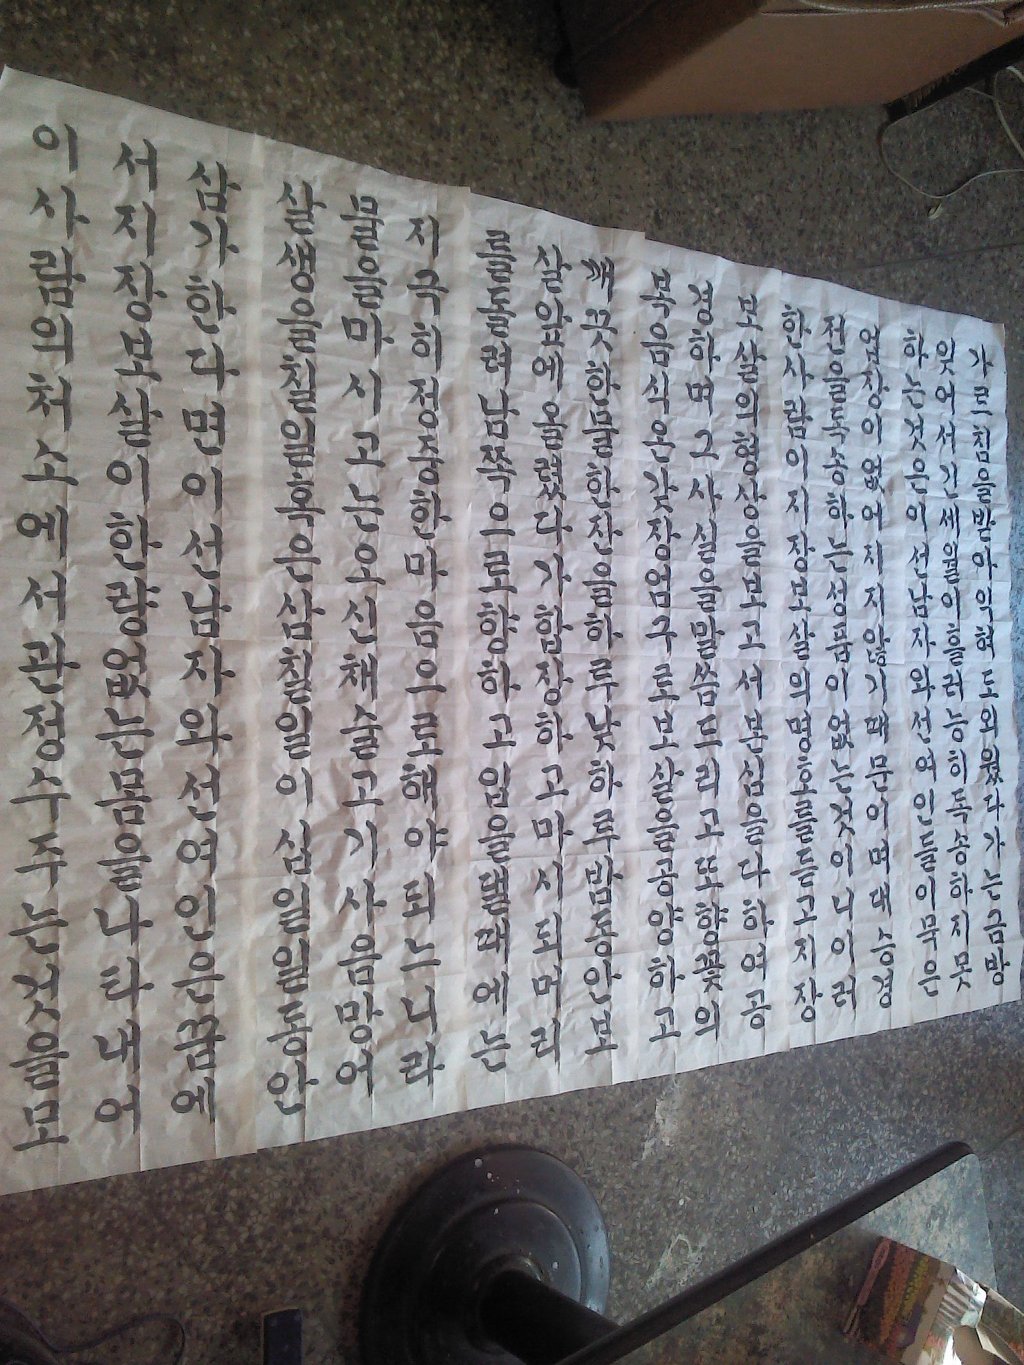 가르침을받아익혀도와왔다가는금방
잊어서긴세월이흘러능히독송하지못
하는것은이선남자와선여인들의묵은
업장이없어지지않기때문이며대승경
전을독송하는성품이없는것이니이러
한사람이지장보살의명호를듣고지장
보살의형상을보고서본심을다하여공
경하며그사실을말씀드리고또향꽃의
복음식온갖장엄구로보살을공양하고
깨끗한물한잔을하루낮하루밤동안보
살앞에올렸다가합장하고마시되머리
를돌려남쪽으로향하고입을뗄적에는
지극히정중한마음으로해야되느니라
물을마시고는오신채술고기사음망어
살생을칠일일혹은삼칠일이삼일일동안
삼가한다면이선남자와선여인은꿈에
서지장보살이한량없는몸을나타내어
이사람의처소에서관정수주는것을보